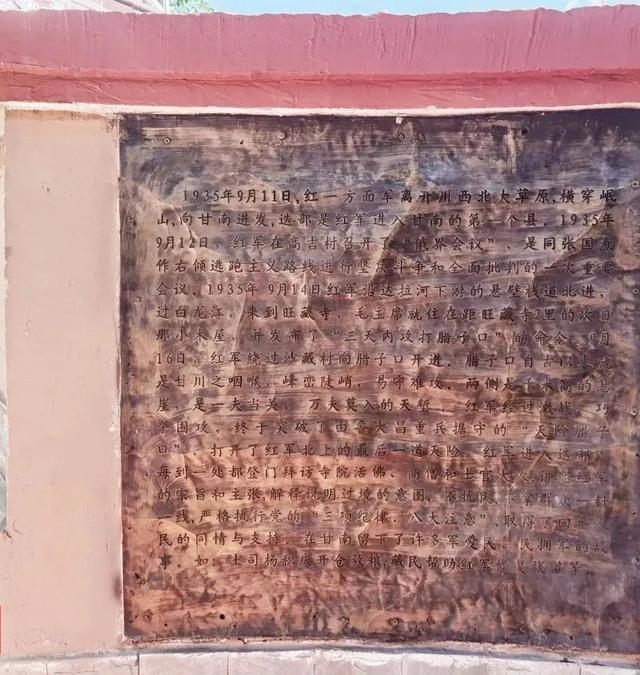 1935年9月11日,红一方面军离开川西北大草原,横穿岷
山,向甘南进发,迭部是红军进入甘南的第一个县。1935年
9月12日,红军在高吉村召开了“俄界会议”,是同张国焘
作右倾逃跑主义路线进行坚决斗争和全面批判的一次重要
会议。1935年9月14日红军沿达拉河下游的悬壁栈道北进,
过白龙江,来到旺藏寺,毛主席就住在距旺藏寺2里的次日
那小木屋,并发布了“三天内攻打腊子口”的命令。9月
16日,红军绕过沙藏村向腊子口开进。腊子口自古以来就
是甘川之咽喉,峰峦陡峭,易守难攻,两侧是千米高的悬
崖,是一夫当关,万夫莫入的天堑。红军经过激战,巧
夺固攻,终于突破了由鲁大昌重兵据守的“天险腊子
口”,打开了红军北上的最后一道天险。红军进入迭部,
每到一处都登门拜访寺院活佛、高僧和土官大人,讲述红军
的宗旨和主张,解释说明过境的意图,不扰民,不拿群众一针
一线,严格执行党的“三项纪律、八大注意”,取得了回藏人
民的同情与支持。在甘南留下了许多军爱民、民拥军的故
事 如:土司杨积庆开仓放粮,藏民帮助红军修复栈道等。